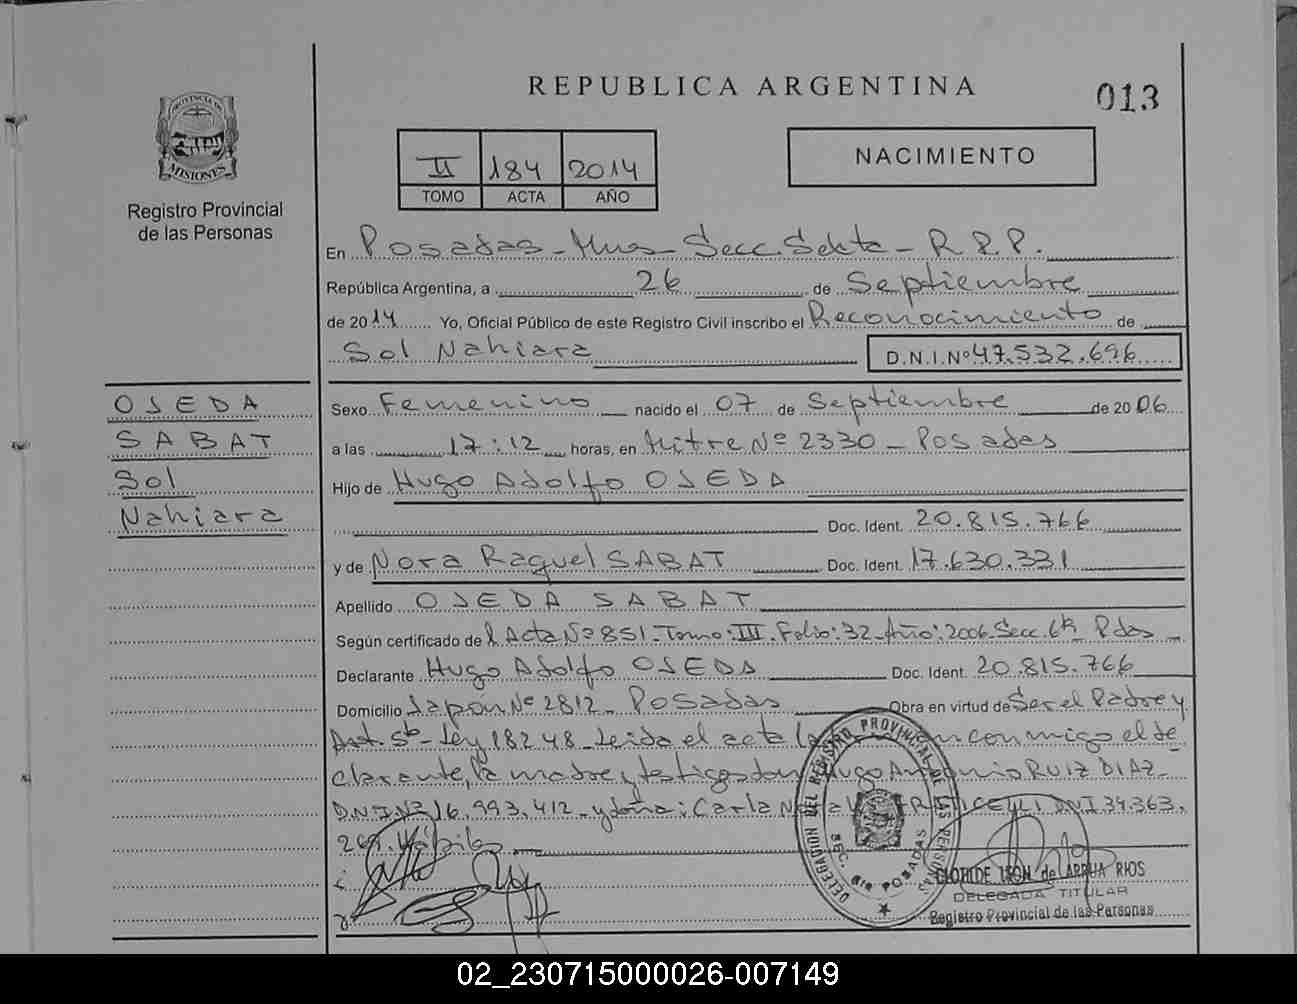 REPUBLICA ARGENTINA
013
PROVINCIA DE
MISIONES
Registro Provincial
de las Personas
II 184 2014
TOMO ACTA AÑO
NACIMIENTO
En Posadas - Mnes - Secc. Sexta - R.P.P.
República Argentina, a 26 de Septiembre
de 2014 Yo, Oficial Público de este Registro Civil inscribo el Reconocimiento de
Sol Nahiara D.N.I.Nº 47.532.696
OJEDA
SABAT
Sol
Nahiara
Sexo Femenino nacido el 07 de Septiembre de 2006
a las 17:12 horas, en Mitre Nº 2330 - Posadas
Hijo de Hugo Adolfo OJEDA
Doc. Ident. 20.815.766
y de Nora Raquel SABAT Doc. Ident. 17.630.331
Apellido OJEDA SABAT
Según certificado de l Acta Nº 851 - Tomo: III. Folio: 32 - Año: 2006 - Secc. 6ta Pdas
Declarante Hugo Adolfo OJEDA Doc. Ident. 20.815.766
Domicilio Japón Nº 2812 - Posadas Obra en virtud de Ser el Padre y
Art. 5to - Ley 18248 - Leída el acta la conmigo el de
clarante, la madre y testigos don Hugo Antonio RUIZ DIAZ -
D.N.I.Nº 16.993.412 - y doña: Carla D.N.I 34.363.
269. Hábiles
DELEGACION DEL REGISTRO PROVINCIAL DE LAS PERSONAS
SEC. 6ta POSADAS
CLOTILDE LEON de ARRUA RIOS
DELEGADA TITULAR
Registro Provincial de las Personas
02_230715000026-007149